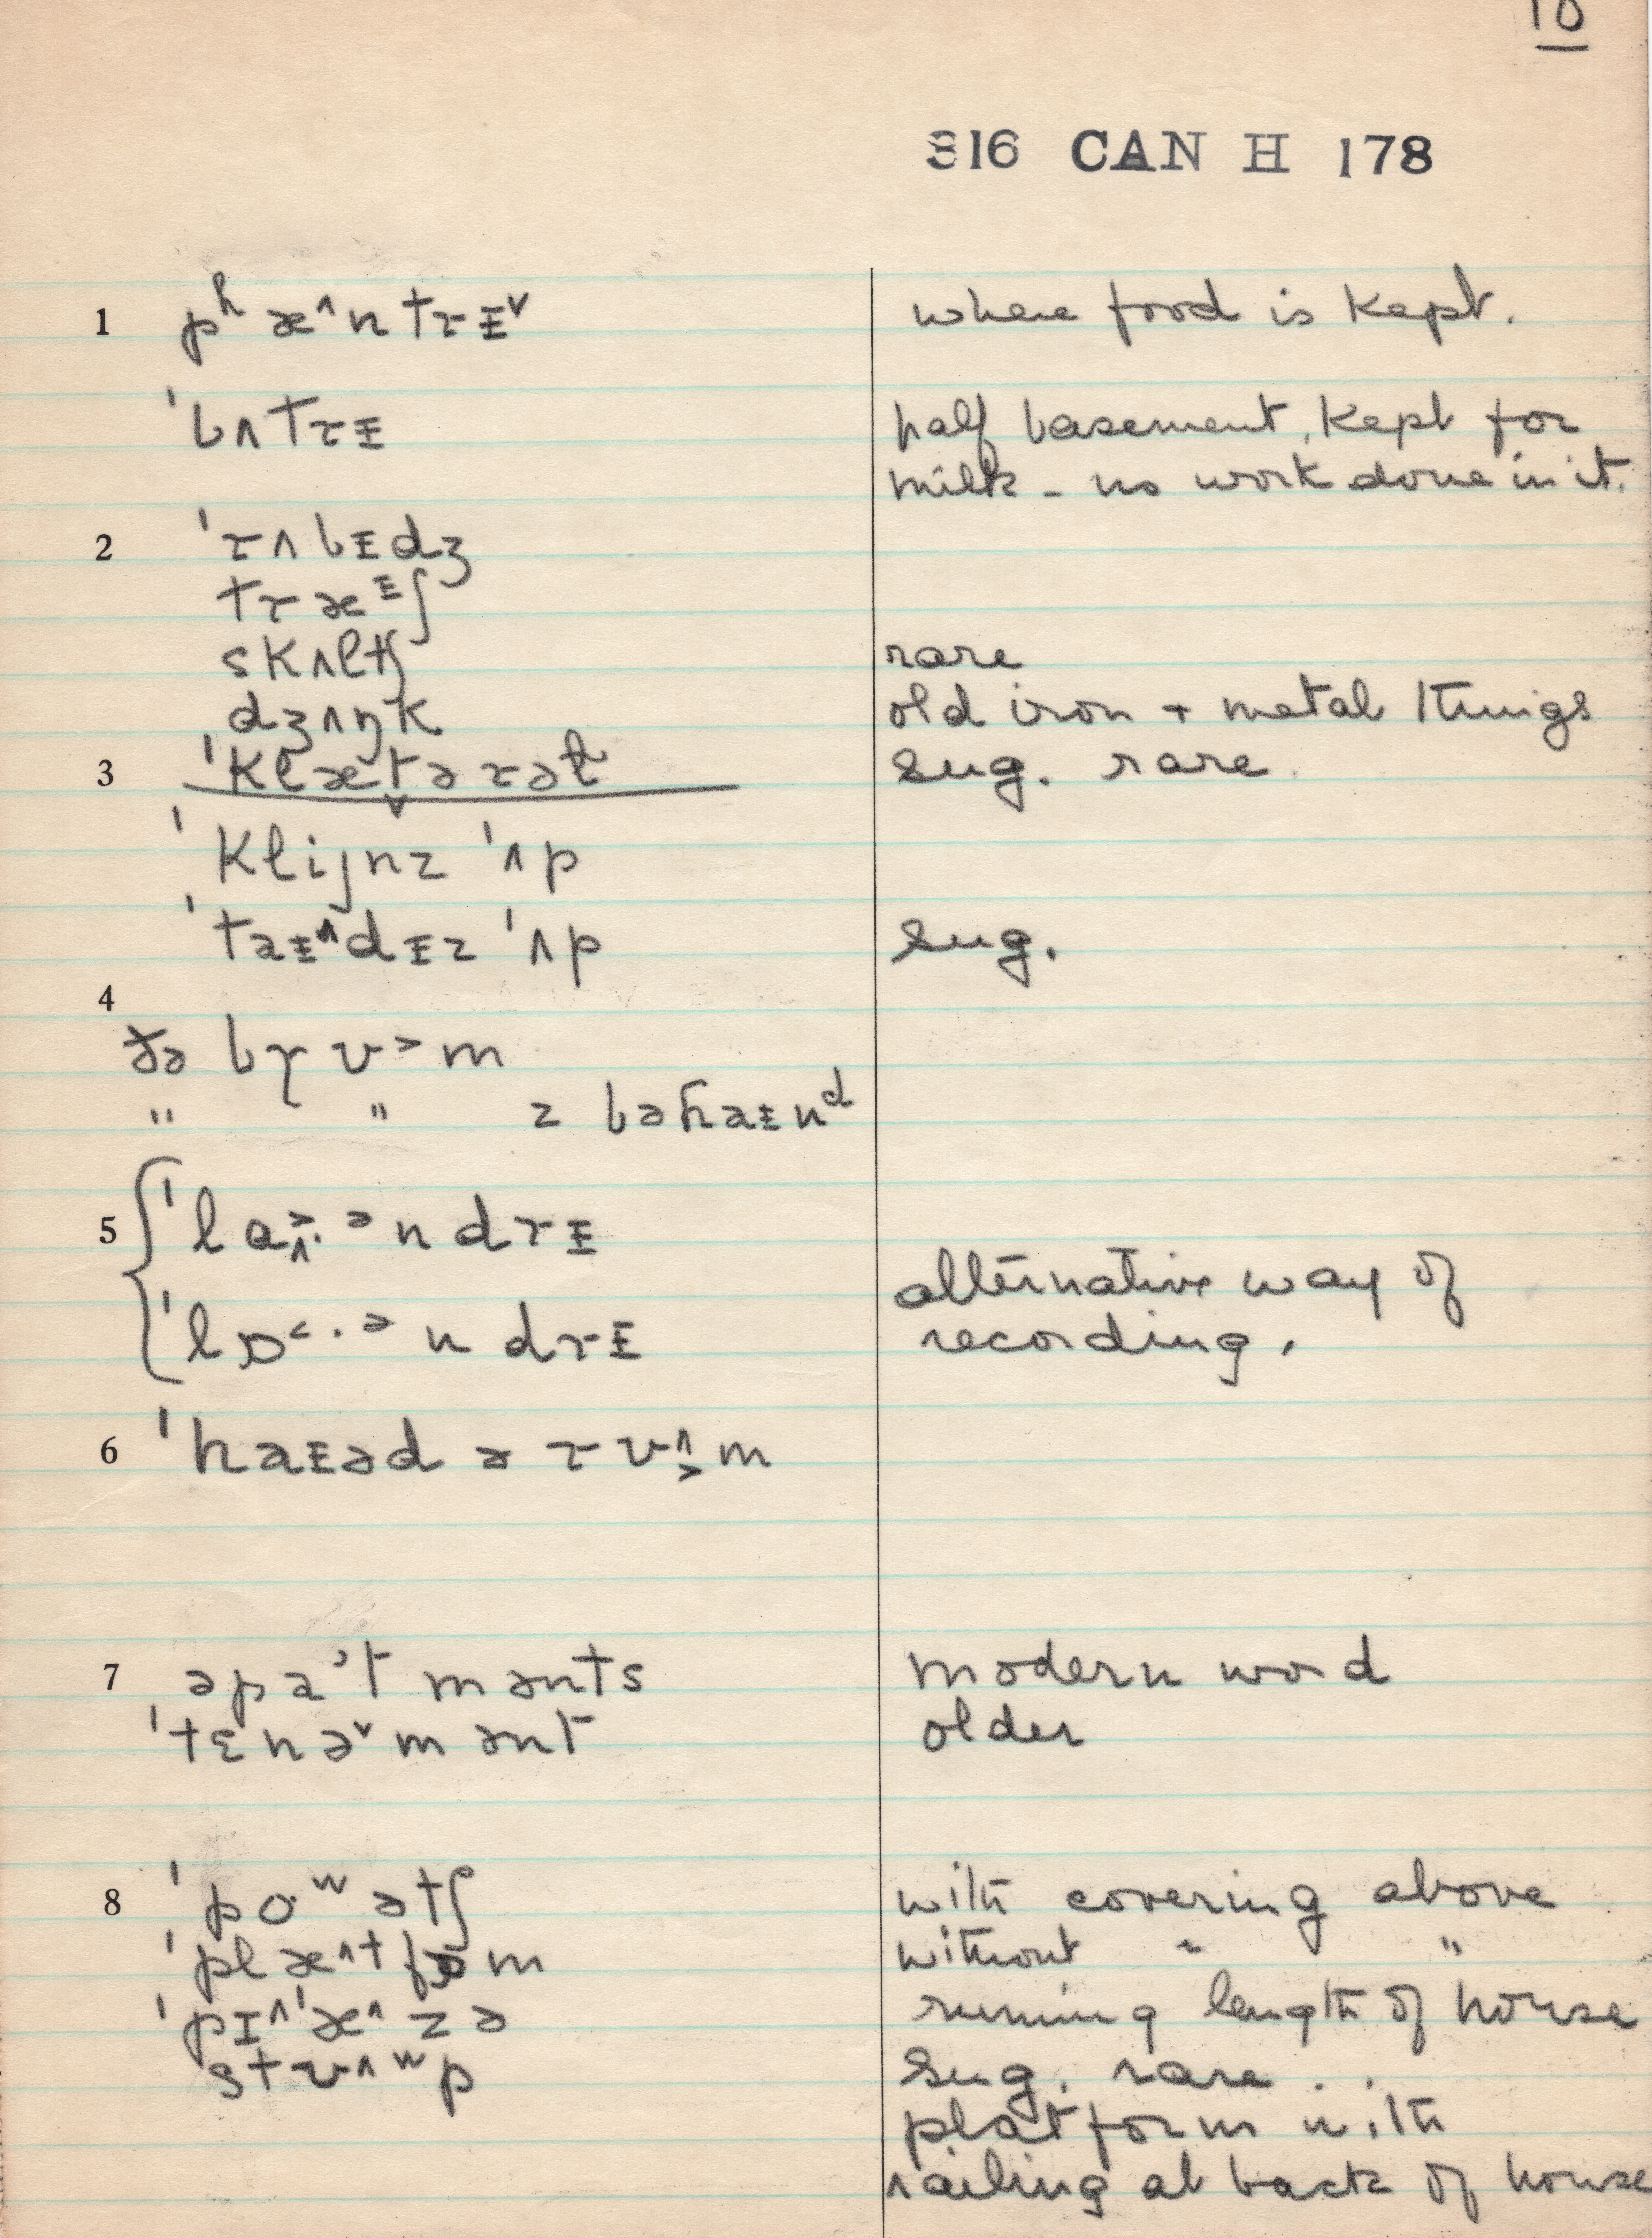 10
316 CAN H 178
1 pʰæ˄ntrɪ˅ where food is kept.
ˈbʌtrɪ half basement, kept for
milk – no work done in it.
2 ˈrʌbɪdʒ
træᶦʃ
skʌltʃ rare
dʒʌŋk old iron + metal things
3 ˈklætərət sug. rare.
ˈklijnz ˈʌp
ˈtaɪ˄dɪz ˈʌp sug.
4
ðə brʊ˃m
" " z bəhaɪnᵈ
5 ˈlɑ˃˄·ᵊndrɪ
alternative way of
ˈlɒ˂·ᵊndrɪ recording.
6 ˈhaɪəd ə rʊ˄˃m
7 əpaˀtmənts modern word
ˈtɛnə˅mənt older
8 ˈpoʷətʃ with covering above
ˈplæ˄tfɒm without " "
ˈpɪ˄ˈæ˄zə running length of house
stʊ˄ʷp sug. rare..
platform with
railing at back of house